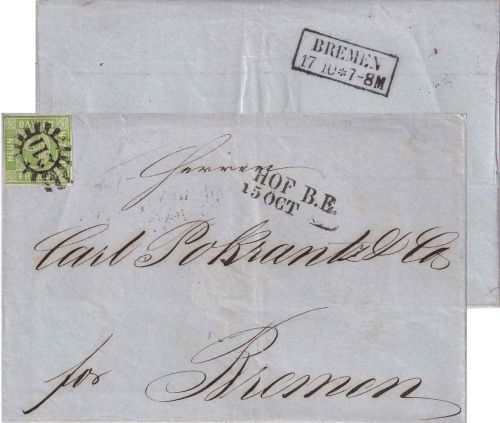 BREMEN
17 10*7-8M
BAYERN
NEUN
311
Herren
HOF B.E.
15 OCT
Carl Pokrantz & Co
for Bremen